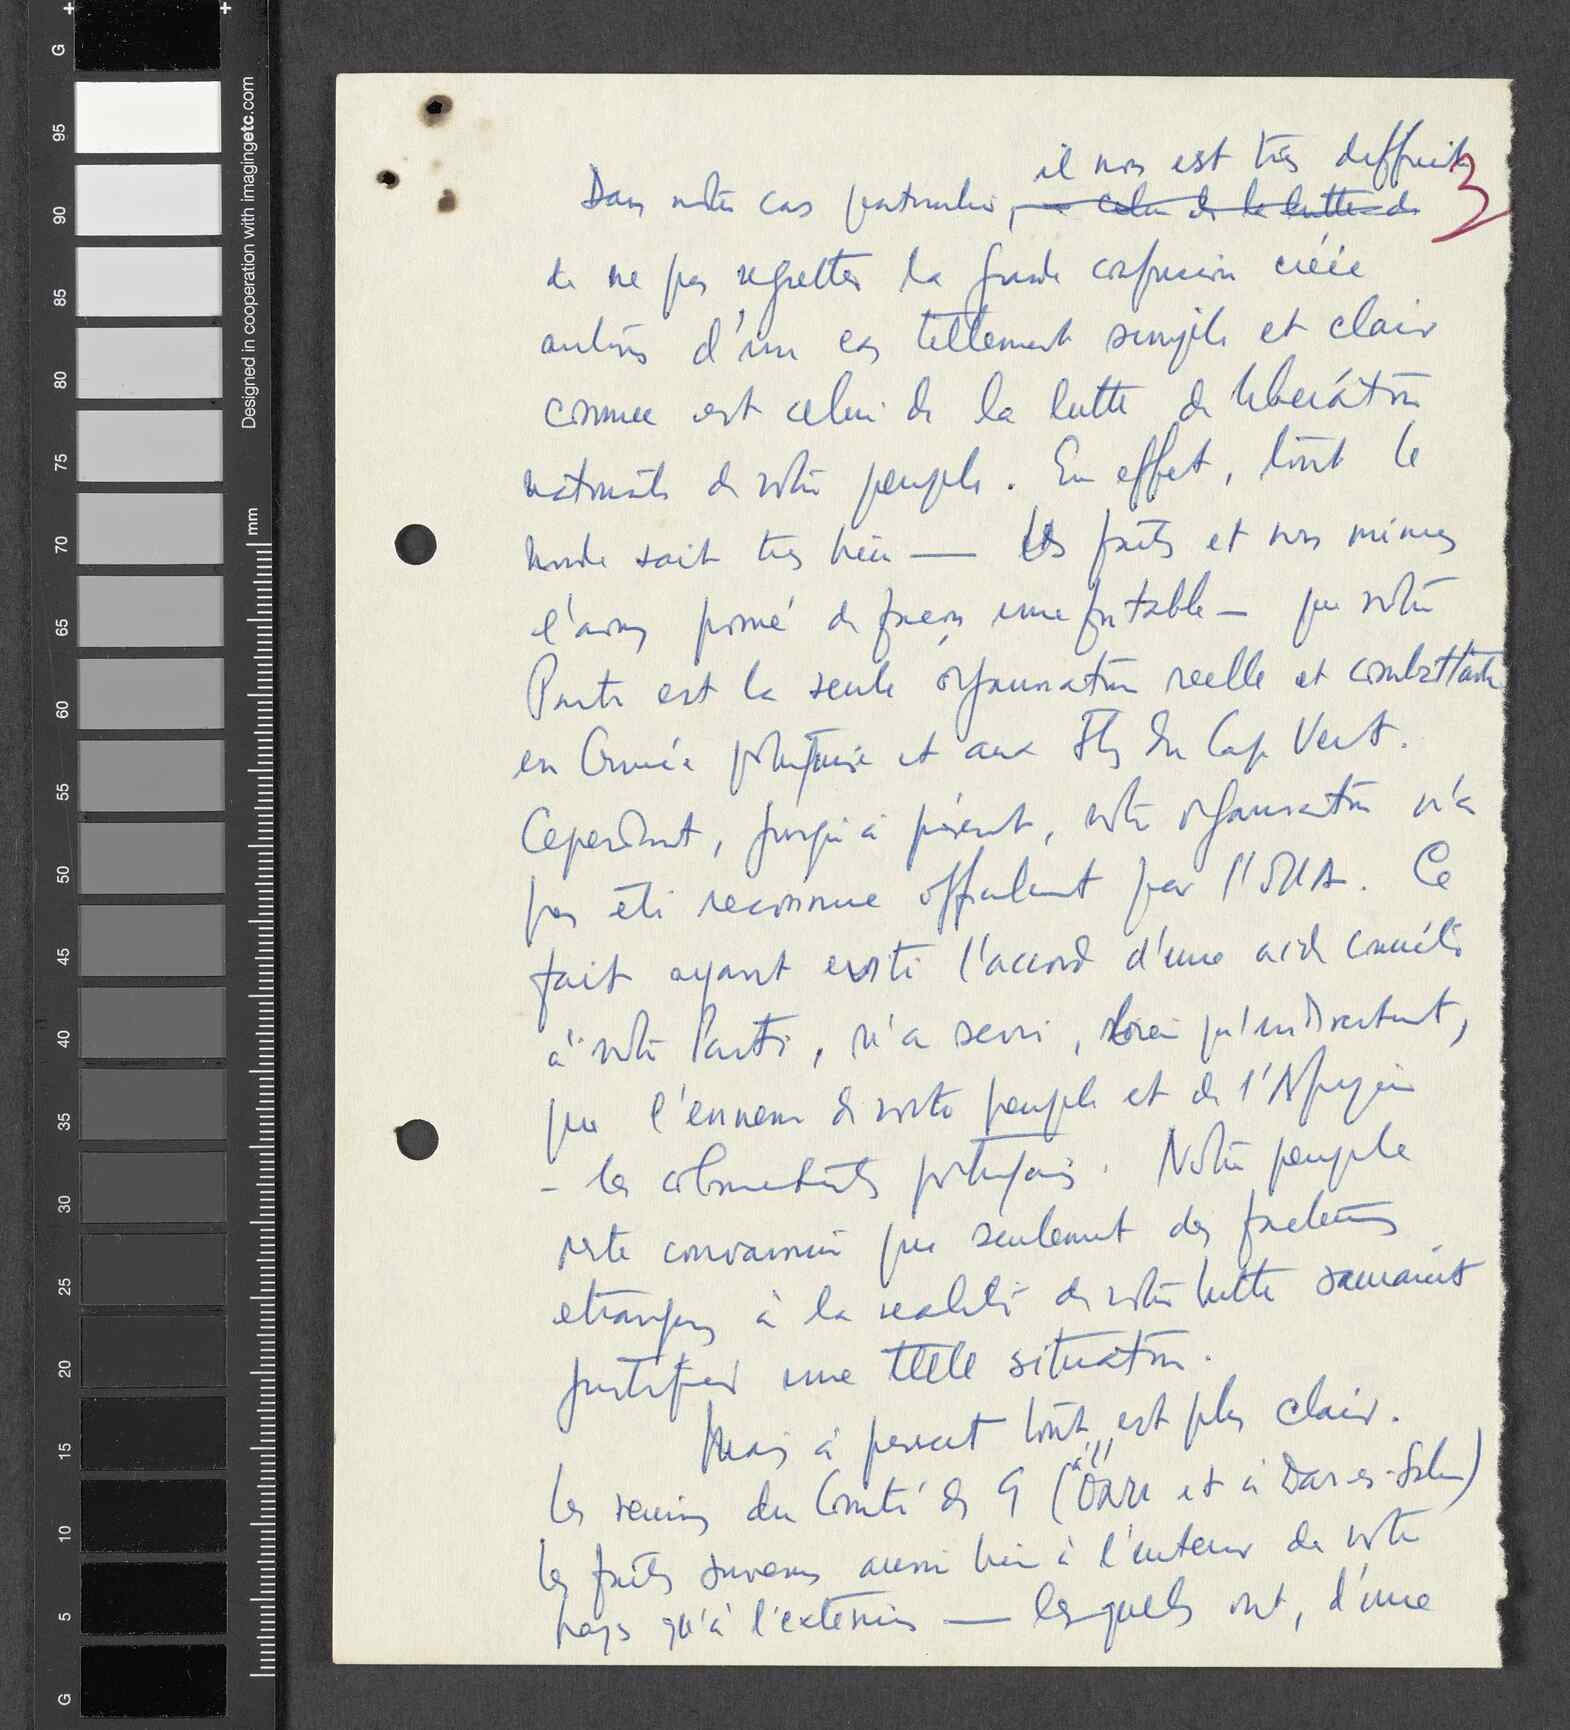 il nous est très difficile
3
Dans notre cas particulier, celui de la lutte de
de ne pas regretter la grande confusion créée
autour d'un cas tellement simple et clair
comme est celui de la lutte de libération
nationale de notre peuple. En effet, tout le
monde sait très bien — les faits et nous mêmes
l'avons prouvé de façon irrefutable — que notre
Parti est la seule organisation reelle et combattante
en Guinée portugaise et aux Iles du Cap Vert.
Cependant, jusqu'à présent, notre organisation n'a
pas été reconnue officielement par l'OUA. Ce
fait ayant evité l'accord d'une aide concrète
à notre Parti, n'a servi, bien qu'indirectement,
que l'ennemi de notre peuple et de l'Afrique
- les colonialistes portugais. Notre peuple
reste convaincu que seulement des facteurs
etrangers à la realité de notre lutte sauraient
justifier une telle situation.
Mais à present tout est plus clair.
Les reunions du Comité des 9 (à Dakar et à Dar-es-Salam)
les faits survenus aussi bien à l'interieur de notre
pays qu'à l'exterieur — lesquels ont, d'une
G
95
90
85
80
75
70
65
60
55
50
45
40
35
30
25
20
15
10
5
G
mm
Designed in cooperation with imagingetc.com